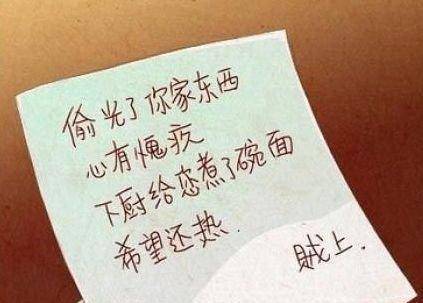 偷光了你家东西
心有愧疚
下厨给您煮了碗面
希望还热.
贼上.